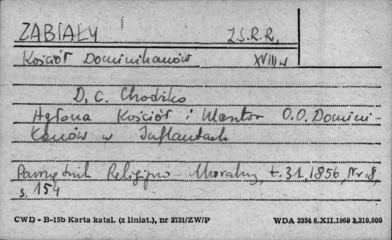 ZABIAŁY Z.S.R.R.
Kościół Dominikanów XVIII w
D. C. Chodźko
Agłona Kościół i Klasztor O.O. Domini-
kanów w Inflantach
Pamiętnik Religijno-Moralny, t. 31, 1856, Nr. 8,
s. 154
CWD - B-15b Karta katal. (z liniat.), nr 2731/ZW/P WDA 3354 6.XII.1960 3,210,000